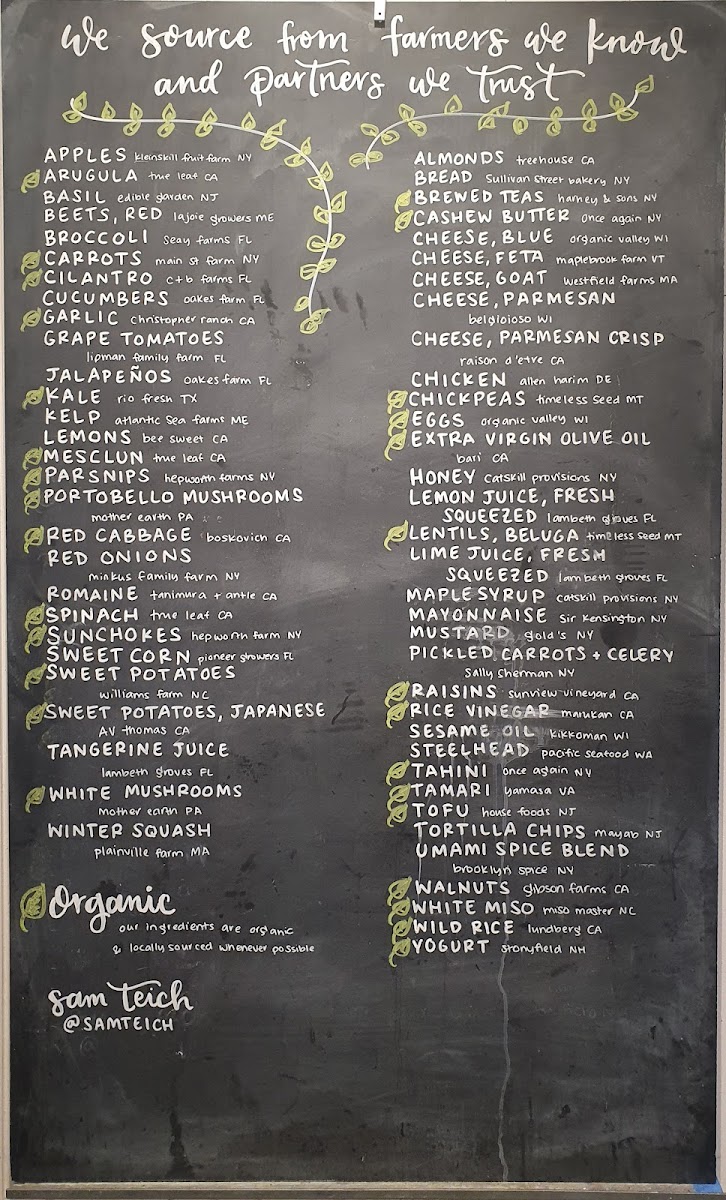 we source from farmers we know
and partners we trust
APPLES kleinskill fruit farm NY
ARUGULA true leaf CA
BASIL edible garden NJ
BEETS, RED lajoie growers ME
BROCCOLI seay farms FL
CARROTS main st farm NY
CILANTRO c+b farms FL
CUCUMBERS oakes farm FL
GARLIC christopher ranch CA
GRAPE TOMATOES
lipman family farm FL
JALAPEÑOS oakes farm FL
KALE rio fresh TX
KELP atlantic sea farms ME
LEMONS bee sweet CA
MESCLUN true leaf CA
PARSNIPS hepworth farms NY
PORTOBELLO MUSHROOMS
mother earth PA
RED CABBAGE boskovich CA
RED ONIONS
minkus family farm NY
ROMAINE tanimura + antle CA
SPINACH true leaf CA
SUNCHOKES hepworth farm NY
SWEET CORN pioneer growers FL
SWEET POTATOES
williams farm NC
SWEET POTATOES, JAPANESE
AV thomas CA
TANGERINE JUICE
lambeth groves FL
WHITE MUSHROOMS
mother earth PA
WINTER SQUASH
plainville farm MA
Organic
our ingredients are organic
& locally sourced whenever possible
sam teich
@SAMTEICH
ALMONDS treehouse CA
BREAD Sullivan Street bakery NY
BREWED TEAS harney & sons NY
CASHEW BUTTER once again NY
CHEESE, BLUE organic valley WI
CHEESE, FETA maplebrook farm VT
CHEESE, GOAT westfield farms MA
CHEESE, PARMESAN
belgioioso WI
CHEESE, PARMESAN CRISP
raison d'etre CA
CHICKEN allen harim DE
CHICKPEAS timeless seed MT
EGGS organic valley WI
EXTRA VIRGIN OLIVE OIL
bari CA
HONEY catskill provisions NY
LEMON JUICE, FRESH
SQUEEZED lambeth groves FL
LENTILS, BELUGA timeless seed MT
LIME JUICE, FRESH
SQUEEZED lambeth groves FL
MAPLE SYRUP catskill provisions NY
MAYONNAISE sir kensington NY
MUSTARD gold's NY
PICKLED CARROTS + CELERY
Sally Sherman NY
RAISINS sunview vineyard CA
RICE VINEGAR marukan CA
SESAME OIL kikkoman WI
STEELHEAD pacific seafood WA
TAHINI once again NY
TAMARI yamasa VA
TOFU house foods NJ
TORTILLA CHIPS mayab NJ
UMAMI SPICE BLEND
brooklyn spice NY
WALNUTS gibson farms CA
WHITE MISO miso master NC
WILD RICE lundberg CA
YOGURT stonyfield NH